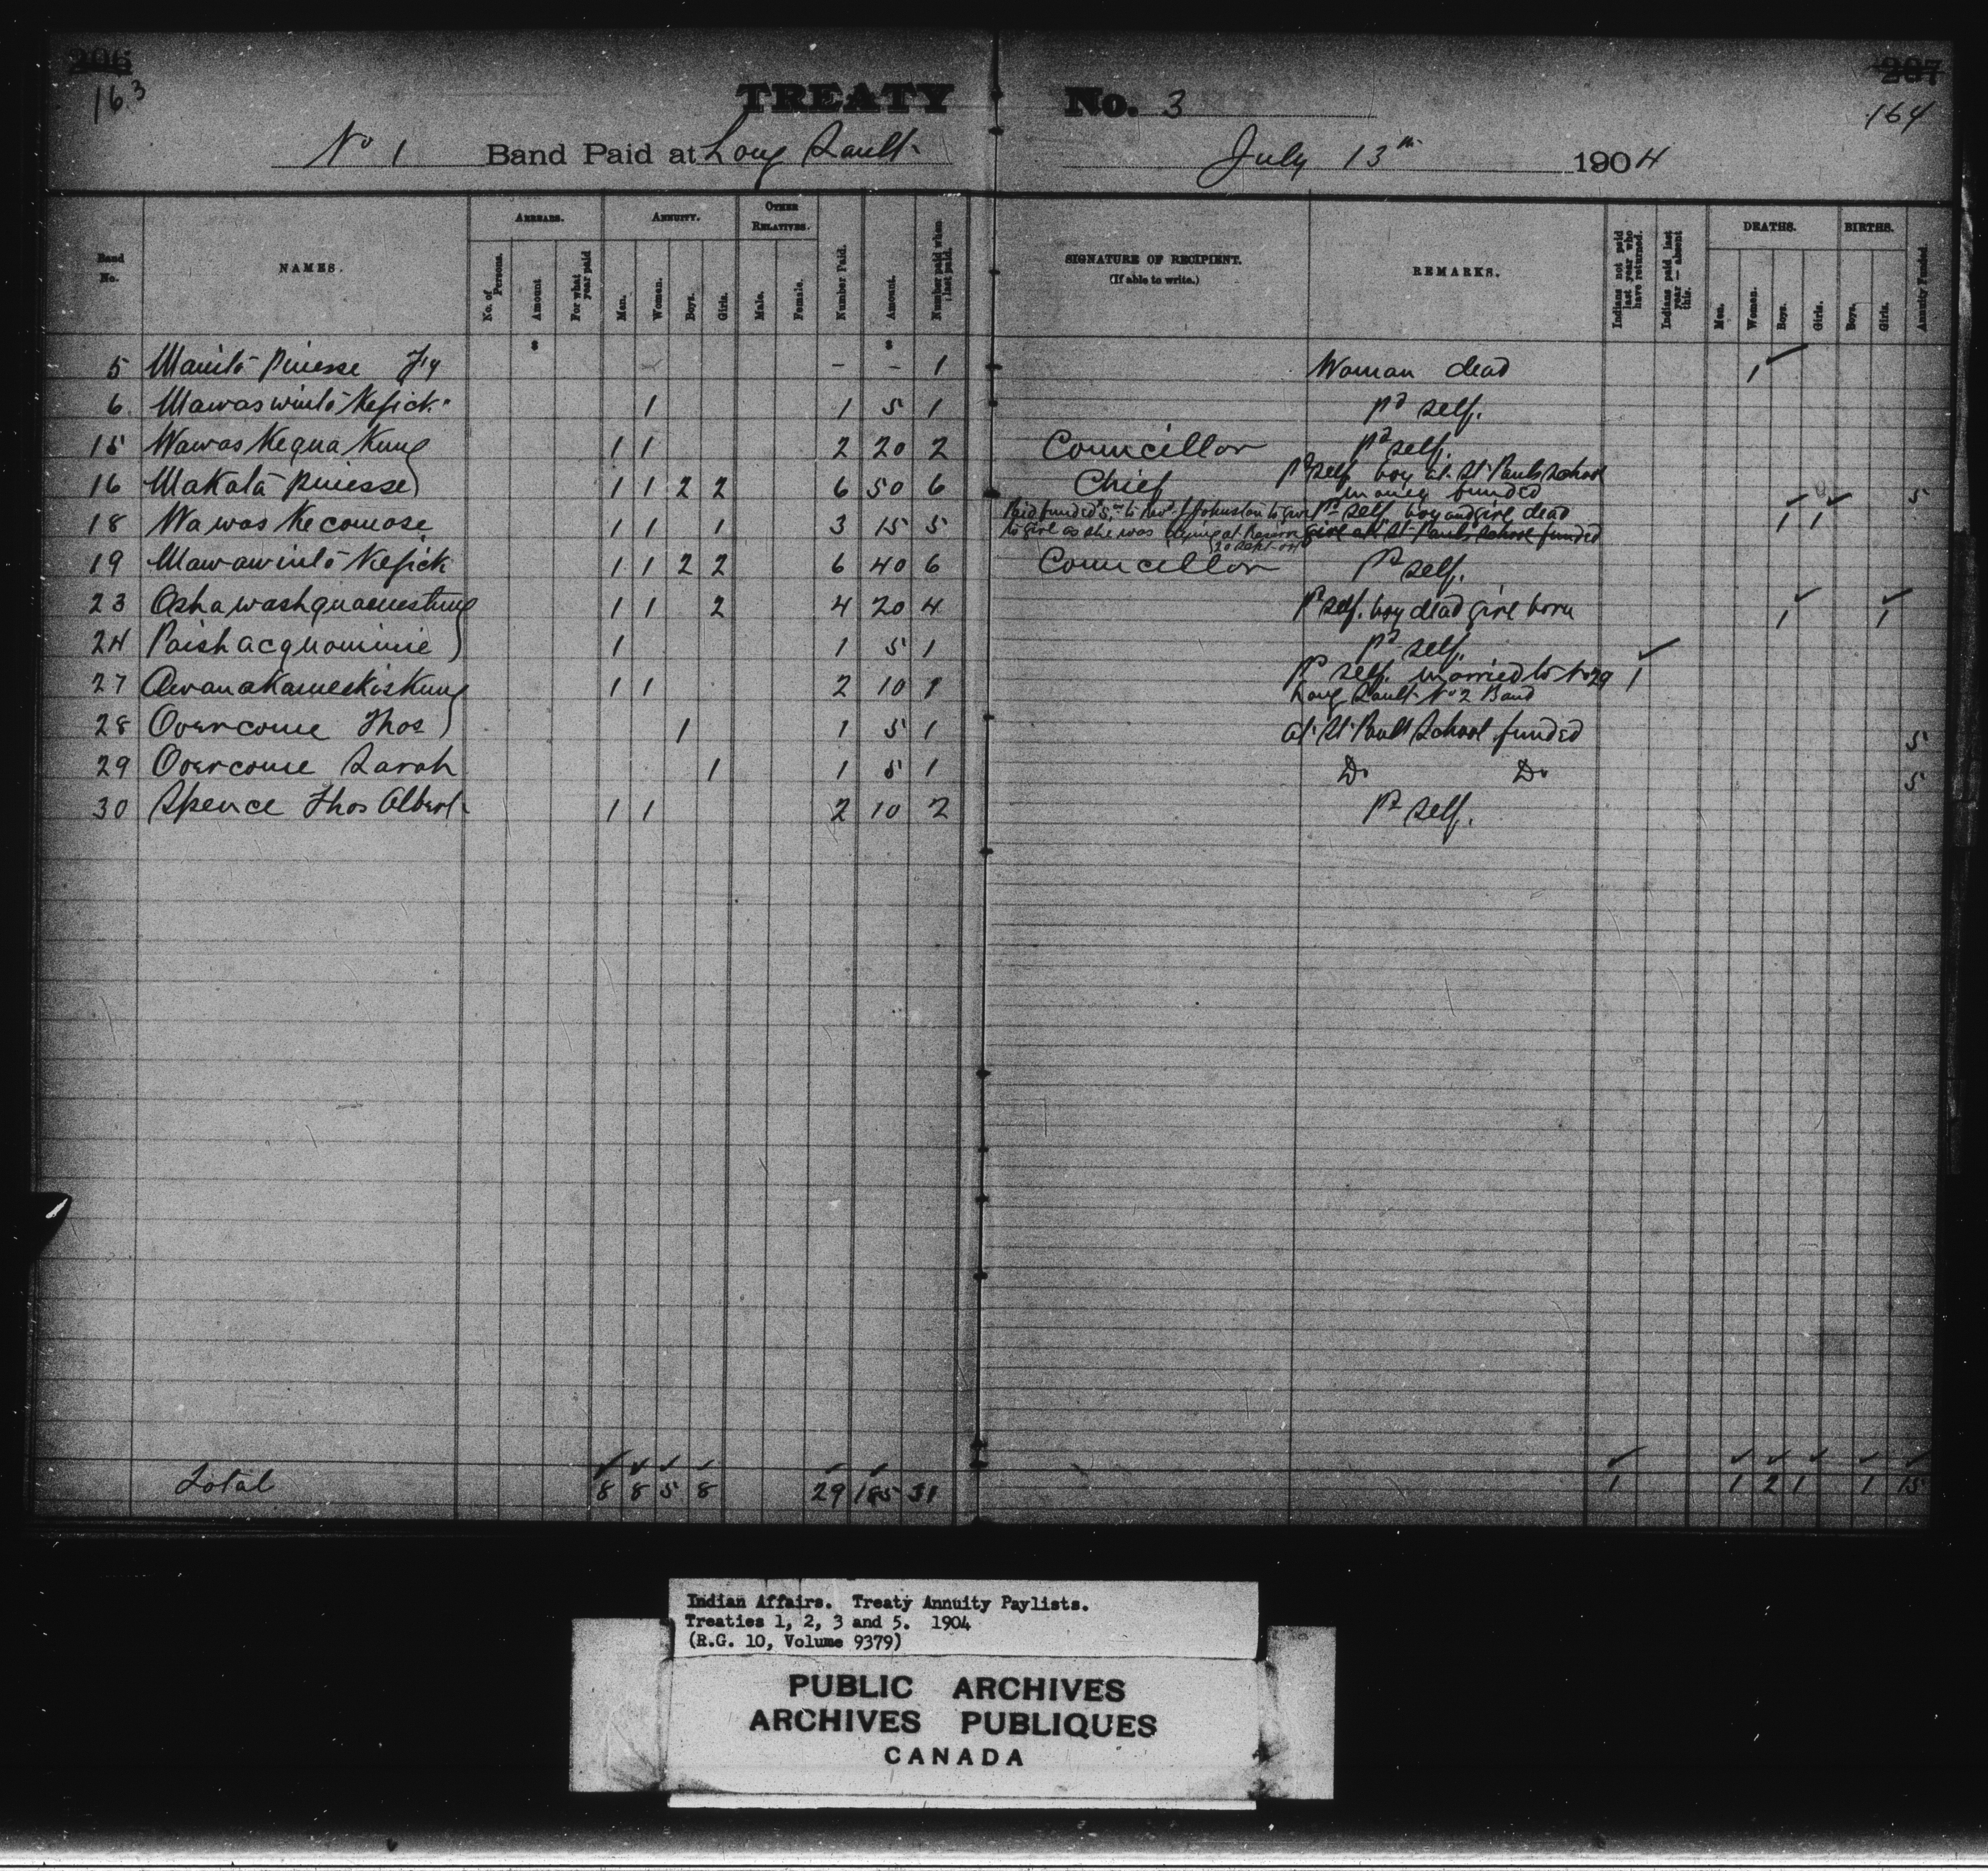 206
207
163
164
TREATY No. 3
No 1 Band Paid at Long Sault July 13th 1904
Band No. NAMES. ARREARS. ANNUITY. OTHER RELATIVES. Number Paid. Amount. Number paid when last paid. SIGNATURE OF RECIPIENT. (If able to write.) REMARKS. Indians not paid last year who have returned. Indians paid last year — absent this. DEATHS. BIRTHS. Annuity Funded.
No. of Persons. Amount For what year paid Men. Women. Boys. Girls. Male. Female. Men. Women. Boys. Girls. Boys. Girls.
5 Manito Piniesse - - 1 Woman dead 1
6 Mawaswinto Kesick 1 1 5 1 pd self.
15 Wawas Kequa Kung 1 1 2 20 2 Councillor pd self.
16 Makata piniesse 1 1 2 2 6 50 6 Chief pd self boy at St Pauls School
money funded 5
18 Wawas Kecomose 1 1 1 3 15 5 Paid funded 5.00 to Rev. J Johnston to give pd self boy and girl dead 1 1
to girl as she was girl at St Pauls School funded
20 Sept
19 Mawawinto Kesick 1 1 2 2 6 40 6 Councillor pd self.
23 Ashawashquamestung 1 1 2 4 20 4 pd self. boy dead girl born 1 1
24 Paishacquominie 1 1 5 1 pd self.
27 Awanakameekiskung 1 1 2 10 1 pd self. married to No 29 1
Long Sault No 2 Band
28 Overcome Thos 1 1 5 1 at St Pauls School funded 5
29 Overcome Sarah 1 1 5 1 Do Do 5
30 Spence Thos Albert 1 1 2 10 2 pd self.
Total 8 8 5 8 29 185 31 1 1 2 1 1 15
Indian Affairs. Treaty Annuity Paylists.
Treaties 1, 2, 3 and 5. 1904
(R.G. 10, Volume 9379)
PUBLIC ARCHIVES
ARCHIVES PUBLIQUES
CANADA